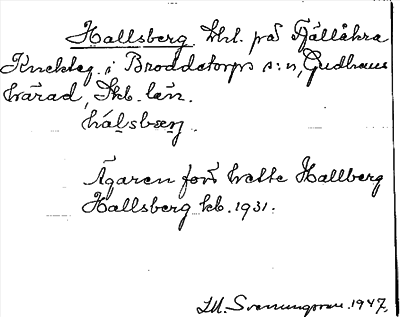 Hallsberg lht. på Fjällåkra
Knekteg. i Broddetorps s:n, Gudhems
härad, Skb. län.
hálsbærj.
Ägaren förr hette Hallberg
Hallsberg kb. 1931.
I.M. Svenungsson. 1947.